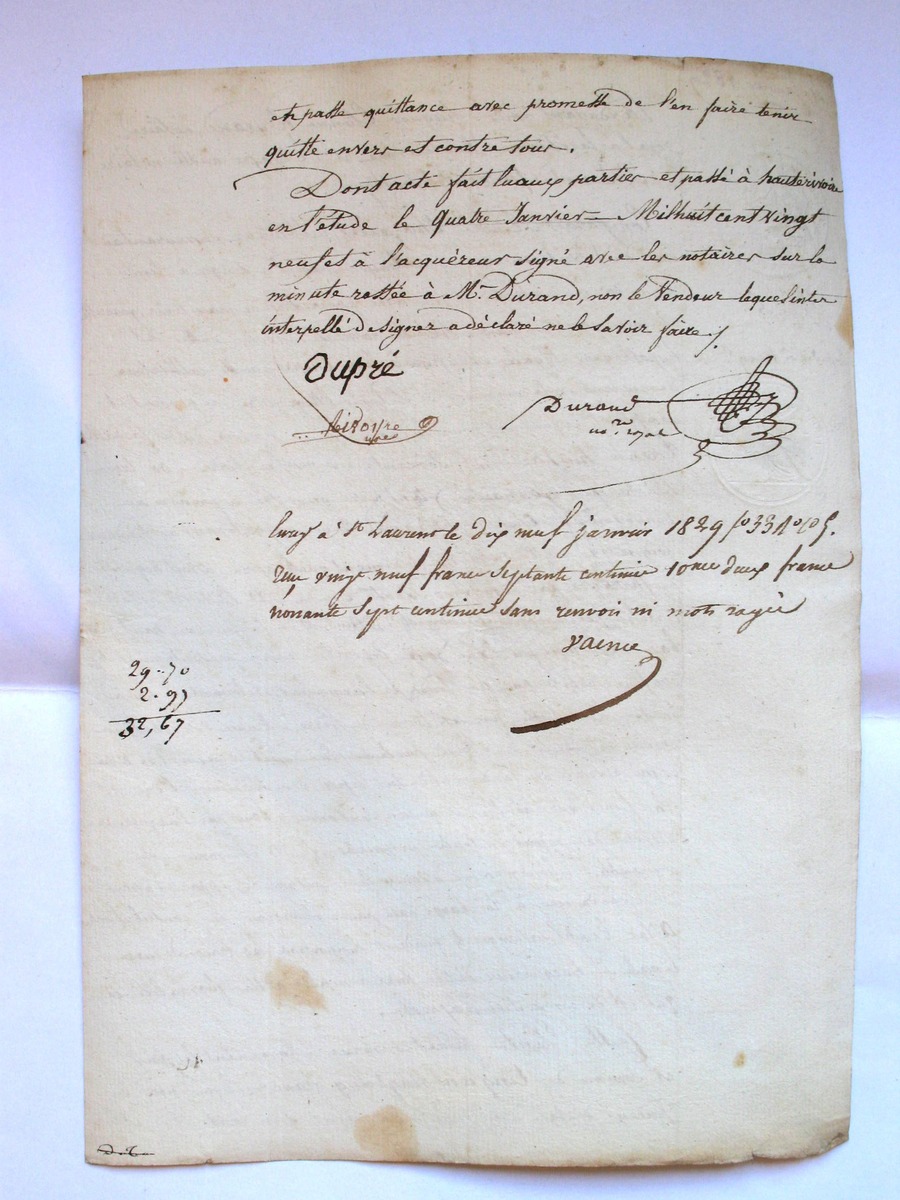 et passe quittance avec promesse de l'en faire tenir
quitte envers et contre tous.
Dont acte fait lu aux parties et passé à hauterivoire
en l'étude le quatre Janvier Mil huit cent vingt
neuf et à l'acquéreur signé avec les notaires sur la
minute restée à Mr. Durand, non le Vendeur lequel inter
interpellé de signer a déclaré ne le savoir faire ./.
Dupré
Durand
nore. royal
à St Laurent le dix neuf janvier 1829 fo 33
reçu vingt neuf francs septante centimes 10me deux francs
nonante sept centimes sans renvoi ni mots rayés
29.-70
2.97
32,67